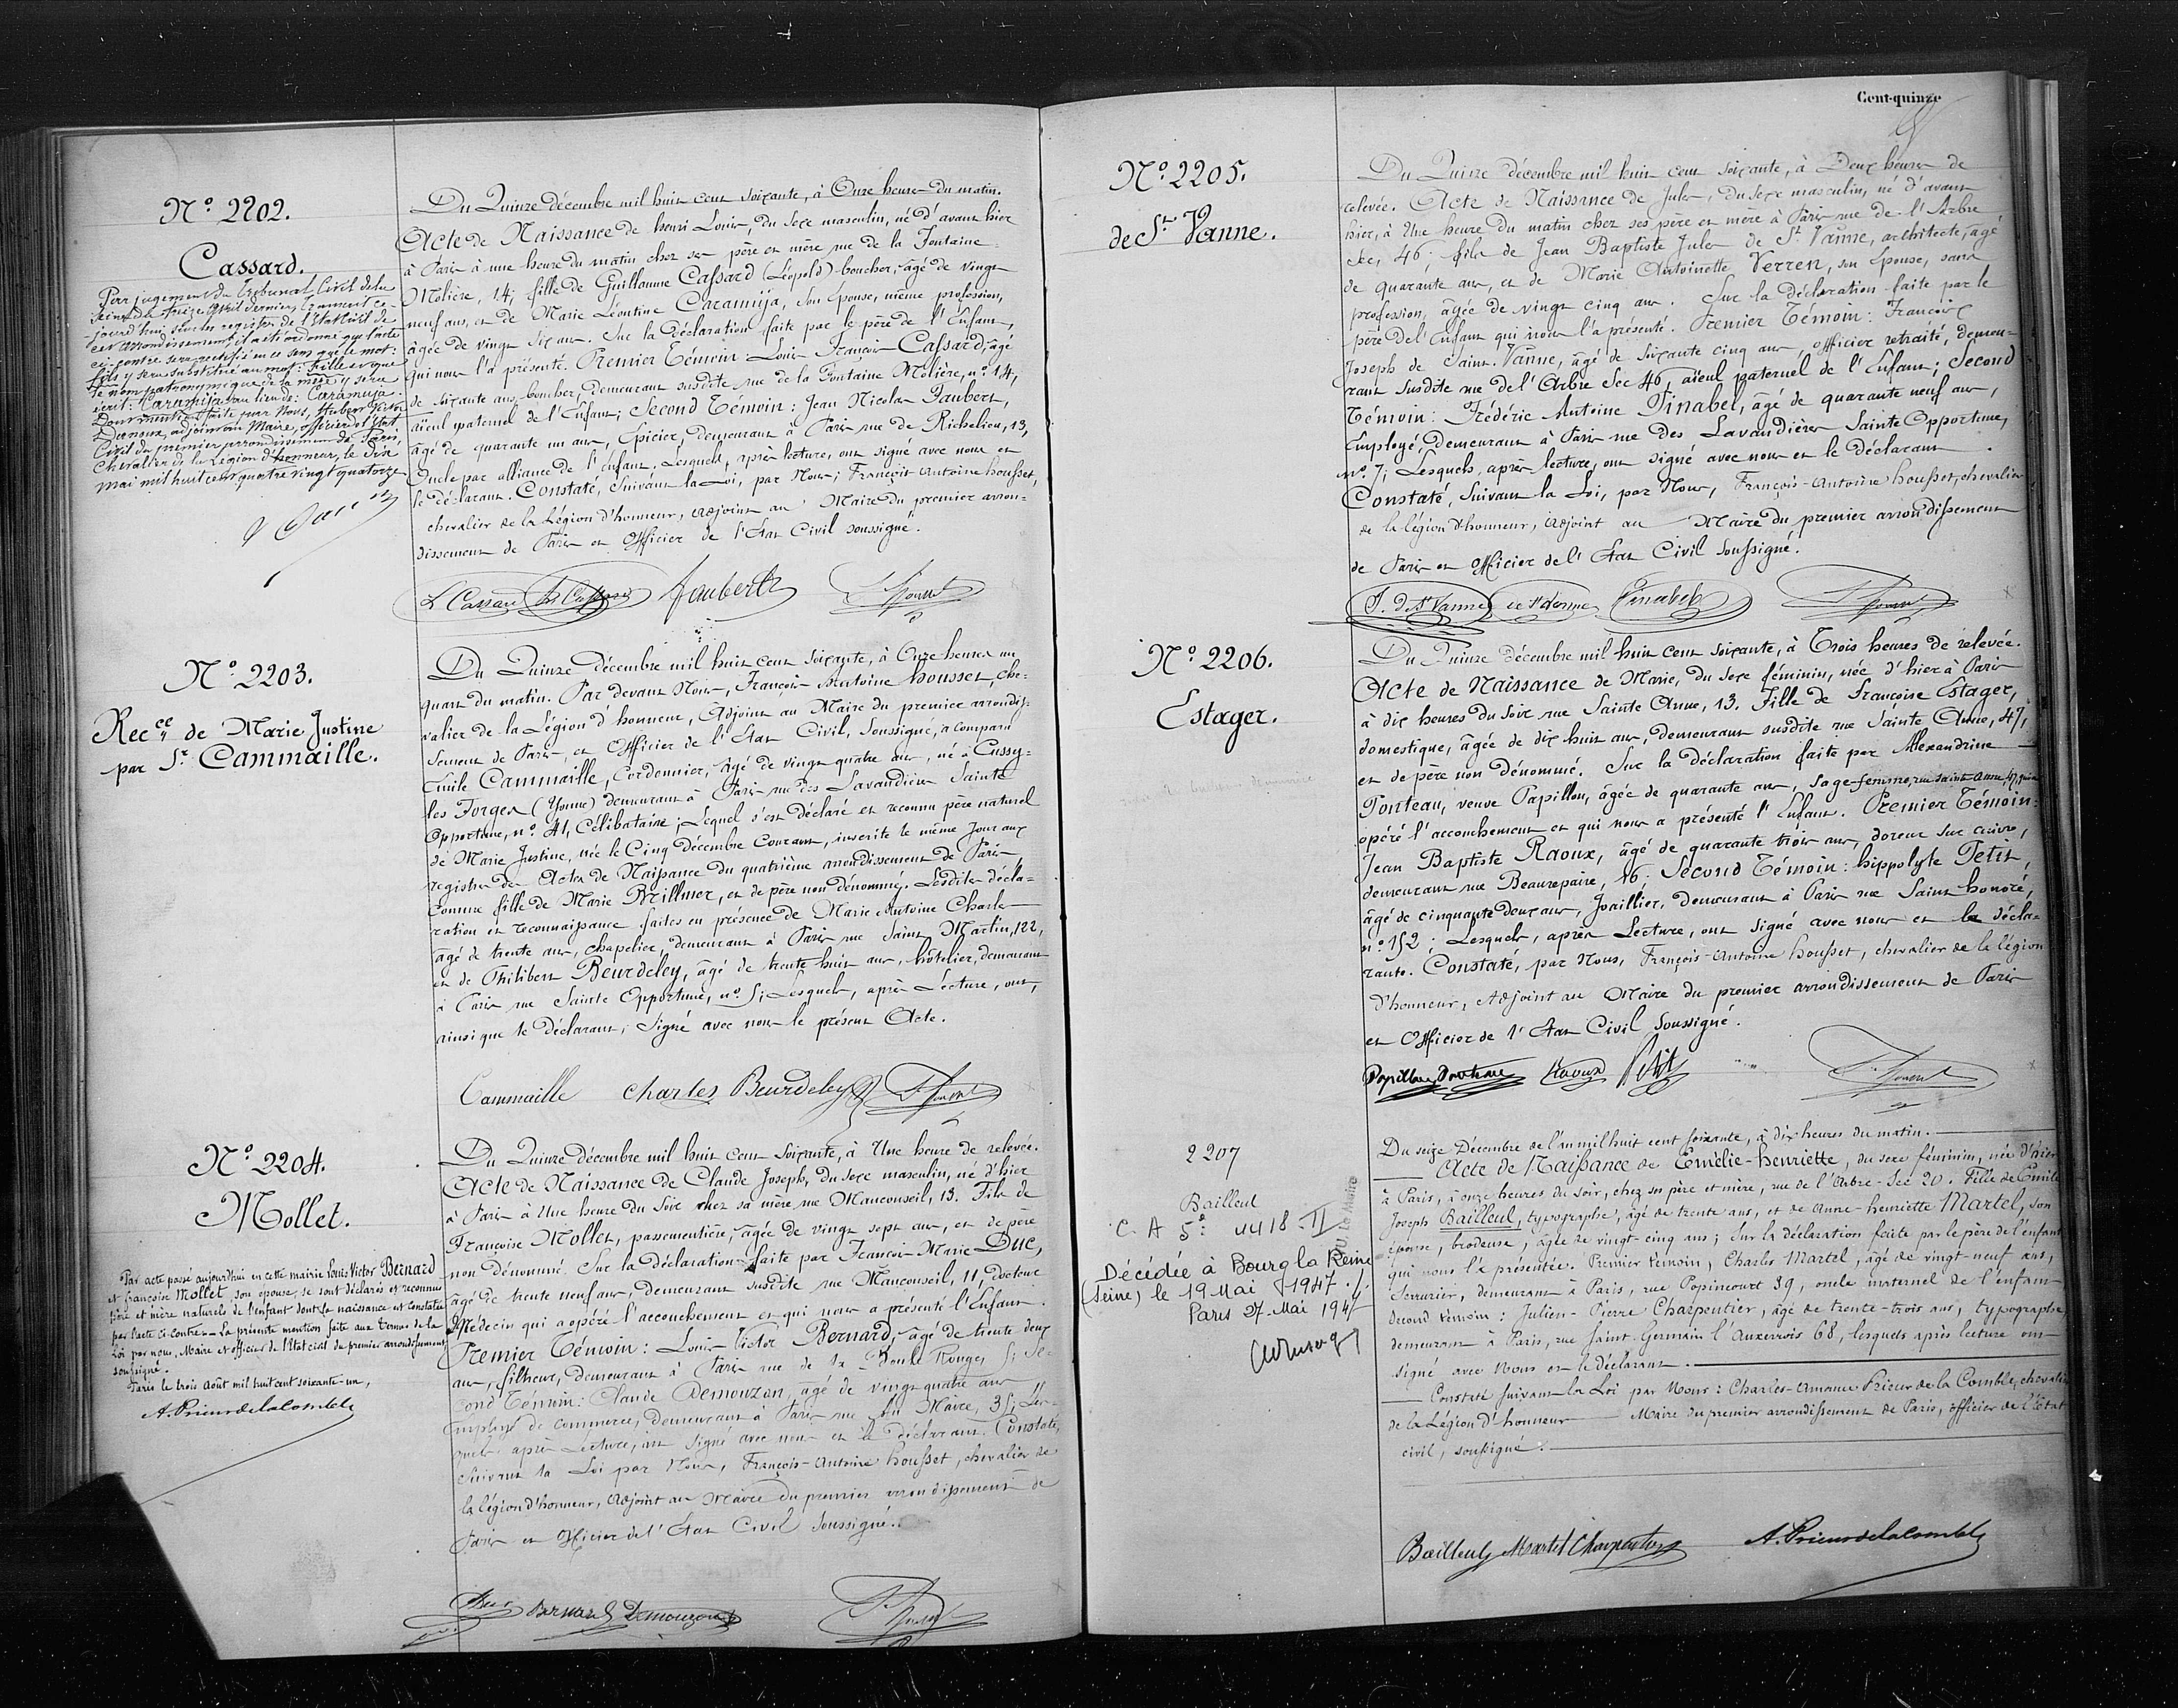 N.º 2202.
Cassard.
Par jugement du Tribunal Civil de la
Seine du treize Avril dernier, transcrit ce-
jourd'hui sur les registres de l'Etat Civil de
cet arrondissement, il a été ordonné que l'acte
ci-contre sera rectifié en ce sens que le mot:
fils y sera substitué au mot: fille et que
le nom patronymique de la mère y sera
écrit: Caramija au lieu de: Caramuja.
Dont mention faite par Nous, Hubert Victor
adjoint au Maire, officier de l'Etat
Civil du premier arrondissement de Paris,
Chevalier de la Légion d'honneur, le dix
mai mil huit cent quatre vingt quatorze
Du Quinze décembre mil huit cent soixante, à Onze heures du matin.
Acte de Naissance de henri Louis, du sexe masculin, né d'avant hier
à Paris à une heure du matin chez ses père et mère rue de la Fontaine
Molière, 14; fille de Guillaume Cassard (Léopold) boucher, âgé de vingt
neuf ans, et de Marie Léontine Caramuja, son Epouse, même profession,
âgée de vingt six ans. Sur la déclaration faite par le père de l'Enfant,
qui nous l'a présenté. Premier Témoin Louis François Cassard, âgé
de soixante ans, boucher, demeurant susdite rue de la Fontaine Molière, n.º 14,
aïeul paternel de l'Enfant; Second Témoin: Jean Nicolas Faubert,
âgé de quarante un ans, Epicier, demeurant à Paris rue de Richelieu, 13,
Oncle par alliance de l'enfant. Lesquels, après lecture, ont signé avec nous et
le déclarant. Constaté, suivant la Loi, par Nous, François-Antoine housset,
chevalier de la Légion d'honneur, adjoint au Maire du premier arron-
dissement de Paris et Officier de l'Etat Civil soussigné.
L Cassard Faubert
N.º 2203.
Recce de Marie Justine
par Sr. Cammaille.
Du Quinze décembre mil huit cent soixante, à Onze heures un
quart du matin. Par devant Nous, François Antoine housset, che-
valier de la Légion d'honneur, Adjoint au Maire du premier arrondis-
sement de Paris, et Officier de l'Etat Civil, soussigné, a comparu
Emile Cammaille, Cordonnier, âgé de vingt quatre ans, né à Cussy-
les Forges (Yonne) demeurant à Paris rue des Lavandières Sainte
Opportune, n.º 41, Célibataire; Lequel s'est déclaré et reconnu père naturel
de Marie Justine, née le Cinq décembre Courant, inscrite le même Jour aux
registres des Actes de Naissance du quatrième arrondissement de Paris
Comme fille de Marie Brillner, et de père non dénommé. Lesdites décla-
ration et reconnaissance faites en présence de Marie Antoine Charles
âgé de trente ans, chapelier, demeurant à Paris rue Saint Martin, 122,
et de Philibert Beurdeley, âgé de trente huit ans, hôtelier, demeurant
à Paris rue Sainte Opportune, n.º 5; Lesquels, après Lecture, ont,
ainsi que le Déclarant, Signé avec nous le présent Acte.
Cammaille Charles Beurdeley
N.º 2204.
Mollet.
Par acte passé aujourd'hui en cette mairie Louis Victor Bernard
et françoise Mollet, son épouse, se sont déclarés et reconnus
père et mère naturels de l'enfant dont la naissance est constatée
par l'acte ci-contre. - La présente mention faite aux termes de la
loi par nous, Maire et officier de l'Etat civil du premier arrondissement
soussigné.
Paris le trois août mil huit cent soixante-un,
A. Prieur de la Comble
Du Quinze décembre mil huit cent soixante, à Une heure de relevée.
Acte de Naissance de Claude Joseph, du sexe masculin, né d'hier
à Paris à Une heure du Soir chez sa mère rue Mauconseil, 13. Fils de
Françoise Mollet, passementière, âgée de vingt sept ans, et de père
non dénommé. Sur la déclaration faite par François Marie Duc,
âgé de trente neuf ans, demeurant susdite rue Mauconseil, 11, Docteur
Médecin qui a opéré l'accouchement et qui nous a présenté l'Enfant.
Premier Témoin: Louis Victor Bernard, âgé de trente deux
ans, fileur, demeurant à Paris rue de la Boule Rouge, 5; Se-
cond Témoin: Claude Demouzon, âgé de vingt quatre ans
Employé de commerce, demeurant à Paris rue du Maire, 35; Les-
quels après Lecture, ont signé avec nous et le déclarant. Constaté,
suivant la Loi par Nous, François-Antoine housset, chevalier de
la légion d'honneur, Adjoint au Maire du premier arrondissement de
Paris et Officier de l'Etat Civil soussigné.
Duc Bernard Demouzon
Cent-quinze
N.º 2205.
de St. Vanne.
Du Quinze décembre mil huit cent soixante, à Deux heures de
relevée. Acte de Naissance de Jules, du sexe masculin, né d'avant
hier, à Une heure du matin chez ses père et mère à Paris rue de l'Arbre
Sec, 46; fils de Jean Baptiste Jules de St. Vanne, architecte, âgé
de quarante ans, et de Marie Antoinette Verren, son Epouse, sans
profession, âgée de vingt cinq ans. Sur la déclaration faite par le
père de l'Enfant qui nous l'a présenté. Premier Témoin: François
Joseph de Saint-Vanne, âgé de soixante cinq ans, officier retraité, demeu-
rant susdite rue de l'Arbre Sec 46, aïeul paternel de l'Enfant; Second
Témoin: Frédéric Antoine Pinabel, âgé de quarante neuf ans,
Employé, demeurant à Paris rue des Lavandières Sainte Opportune,
n.º 7; Lesquels, après lecture, ont signé avec nous et le déclarant.
Constaté, suivant la Loi, par Nous, François-Antoine housset, chevalier
de la légion d'honneur, Adjoint au Maire du premier arrondissement
de Paris et Officier de l'Etat Civil Soussigné.
J. de St Vanne de St Vanne Pinabel
N.º 2206.
Estager.
Du Quinze décembre mil huit cent soixante, à Trois heures de relevée.
Acte de Naissance de Marie, du sexe féminin, née d'hier à Paris
à dix heures du Soir rue Sainte Anne, 13. Fille de Françoise Estager,
domestique, âgée de dix huit ans, demeurant susdite rue Sainte Anne, 47,
et de père non dénommé. Sur la déclaration faite par Alexandrine
Ponteau, veuve Papillon, âgée de quarante ans, sage-femme, rue sainte anne 47, qui a
opéré l'accouchement et qui nous a présenté l'Enfant. Premier Témoin:
Jean Baptiste Raoux, âgé de quarante trois ans, doreur sur cuivre,
demeurant rue Beaurepaire, 16. Second Témoin: hippolyte Petit,
âgé de cinquante deux ans, Joaillier, demeurant à Paris rue Saint honoré,
n.º 152; Lesquels, après Lecture, ont signé avec nous et la décla-
rante. Constaté, par Nous, François-Antoine housset, chevalier de la légion
d'honneur, Adjoint au Maire du premier arrondissement de Paris
et Officier de l'Etat Civil Soussigné.
Papillon Raoux Petit
2207
Bailleul
C. A 5e 4418 II
Décédée à Bourg la Reine
(Seine) le 19 Mai 1947
Paris 27 Mai 1947
Du seize Décembre de l'an mil huit cent soixante, à dix heures du matin.
Acte de Naissance de Emélie-henriette, du sexe féminin, née d'hier
à Paris, à onze heures du soir, chez ses père et mère, rue de l'Arbre-Sec 20. Fille de Emile
Joseph Bailleul, typographe, âgé de trente ans, et de Anne-henriette Martel, son
épouse, brodeuse, âgée de vingt-cinq ans; Sur la déclaration faite par le père de l'enfant
qui nous l'a présentée. Premier témoin, Charles Martel, âgé de vingt-neuf ans,
Serrurier, demeurant à Paris, rue Popincourt 39, oncle maternel de l'enfant
Second témoin: Julien-Pierre Charpentier, âgé de trente-trois ans, typographe,
demeurant à Paris, rue Saint-Germain l'Auxerrois 68, lesquels après lecture ont
signé avec Nous et le déclarant.
Constaté suivant la Loi par Nous: Charles-Amance Prieur de la Comble, chevalier
de la Légion d'honneur Maire du premier arrondissement de Paris, officier de l'état
civil, soussigné.
Bailleul Martel Charpentier A. Prieur de la Comble